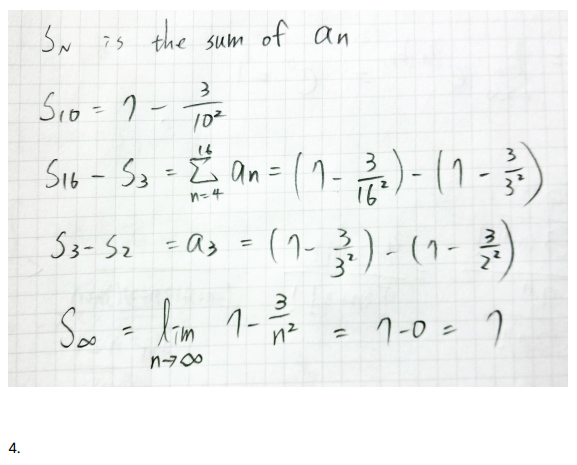 S_N is the sum of an
S_10 = 7 - 3/10²
S_16 - S_3 = Σ_{n=4}^{16} a_n = (7 - 3/16²) - (7 - 3/3²)
S_3 - S_2 = a_3 = (7 - 3/3²) - (7 - 3/2²)
S_∞ = lim_{n→∞} 7 - 3/n² = 7-0 = 7
4.